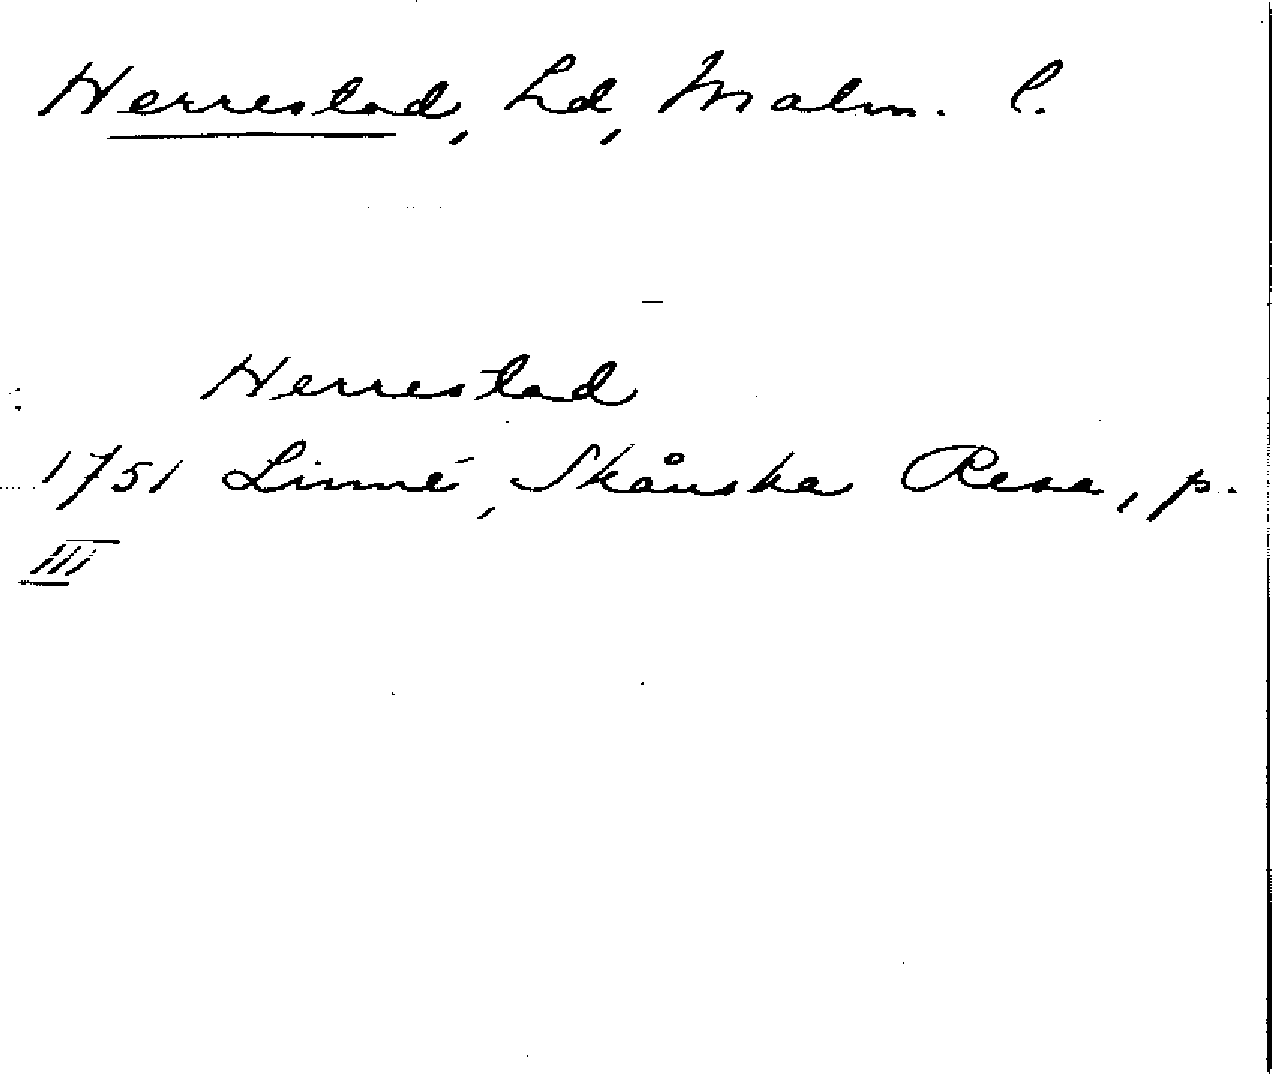 Herrestad, hd, Malm. l.
Herrestad
1751 Linné, Skånska Resa, p.
III